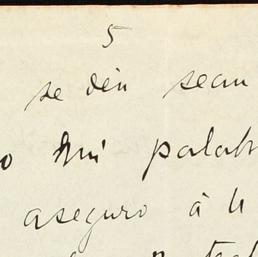 5
se den sean
mi palab
aseguro á